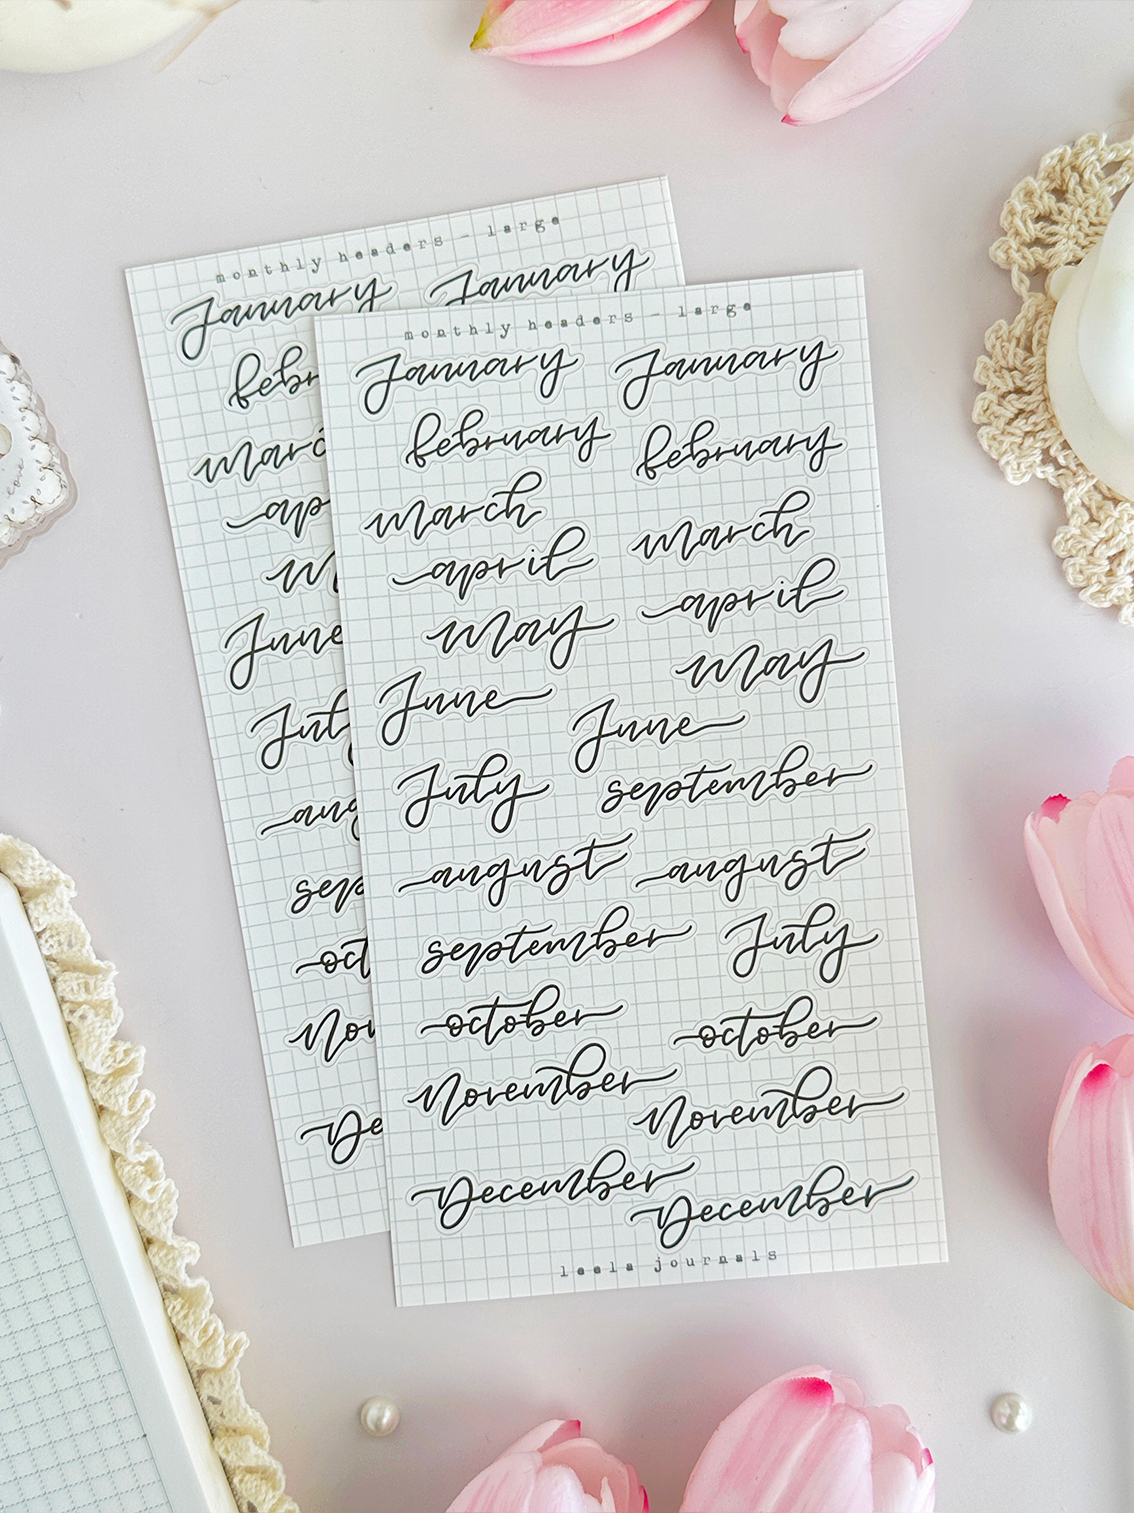 monthly headers - large
January January
febr
marc
ap
M
June
July
aug
sep
oct
Nov
De
monthly headers - large
January January
february february
march march
april april
May May
June June
July september
august august
september July
october october
November November
December December
leela journals